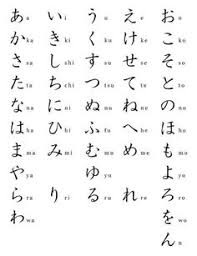 あ a い i う u え e お o
か ka き ki く ku け ke こ ko
さ sa し shi す su せ se そ so
た ta ち chi つ tsu て te と to
な na に ni ぬ nu ね ne の no
は ha ひ hi ふ fu へ he ほ ho
ま ma み mi む mu め me も mo
や ya ゆ yu よ yo
ら ra り ri る ru れ re ろ ro
わ wa を o
ん n